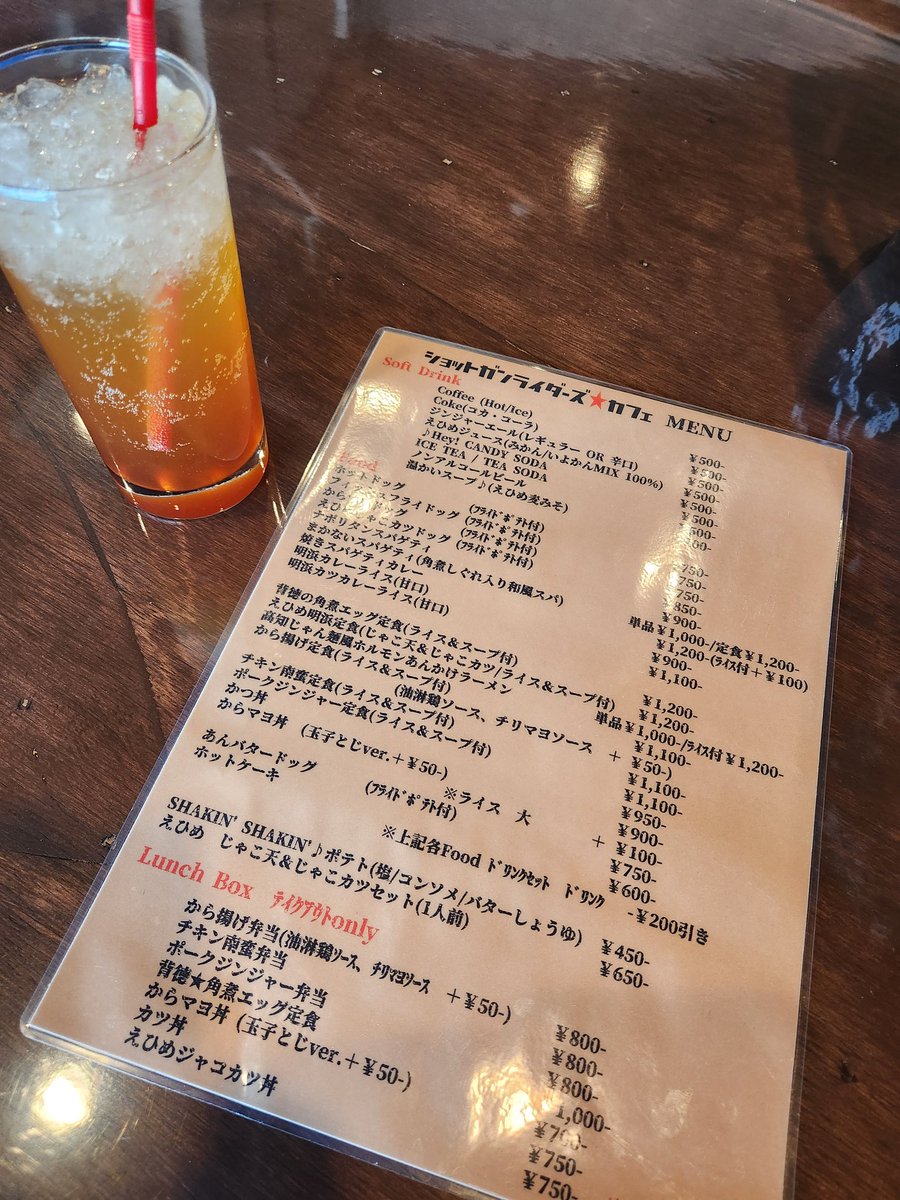 ショットガンライダーズ★カフェ MENU
Soft Drink
Coffee (Hot/Ice) ¥500-
Coke(コカ・コーラ) ¥500-
ジンジャーエール(レギュラー OR 辛口) ¥500-
えひめジュース(みかん/いよかんMIX 100%) ¥500-
♪Hey! CANDY SODA ¥500-
ICE TEA / TEA SODA ¥500-
ノンアルコールビール
温かいスープ♪(えひめ麦みそ)
Food
ホットドッグ (フライドポテト付) ¥750-
(フライドポテト付) ¥750-
(フライドポテト付) ¥750-
えひめじゃこカツドッグ (フライドポテト付) ¥850-
ナポリタンスパゲティ ¥900-
まかないスパゲティ(角煮しぐれ入り和風スパ) 単品¥1,000-/定食¥1,200-
焼きスパゲティカレー ¥1,200-(ライス付+¥100)
明浜カレーライス(甘口) ¥900-
明浜カツカレーライス(甘口) ¥1,100-
背徳の角煮エッグ定食(ライス&スープ付) ¥1,200-
えひめ明浜定食(じゃこ天&じゃこカツ/ライス&スープ付) ¥1,200-
高知じゃん麺風ホルモンあんかけラーメン 単品¥1,000-/ライス付¥1,200-
から揚げ定食(ライス&スープ付) ¥1,100-
(油淋鶏ソース、チリマヨソース +¥50-)
チキン南蛮定食(ライス&スープ付) ¥1,100-
ポークジンジャー定食(ライス&スープ付) ¥1,100-
かつ丼 ¥950-
からマヨ丼 (玉子とじver.+¥50-) ¥900-
※ライス 大 +¥100-
あんバタードッグ (フライドポテト付) ¥750-
ホットケーキ ¥600-
※上記各Food ドリンクセット ドリンク -¥200引き
SHAKIN' SHAKIN'♪ポテト(塩/コンソメ/バターしょうゆ) ¥450-
えひめ じゃこ天&じゃこカツセット(1人前) ¥650-
Lunch Box テイクアウトonly
から揚げ弁当(油淋鶏ソース、チリマヨソース +¥50-) ¥800-
チキン南蛮弁当 ¥800-
ポークジンジャー弁当 ¥800-
背徳★角煮エッグ定食 1,000-
からマヨ丼 (玉子とじver.+¥50-)
カツ丼 ¥750-
えひめジャコカツ丼 ¥750-